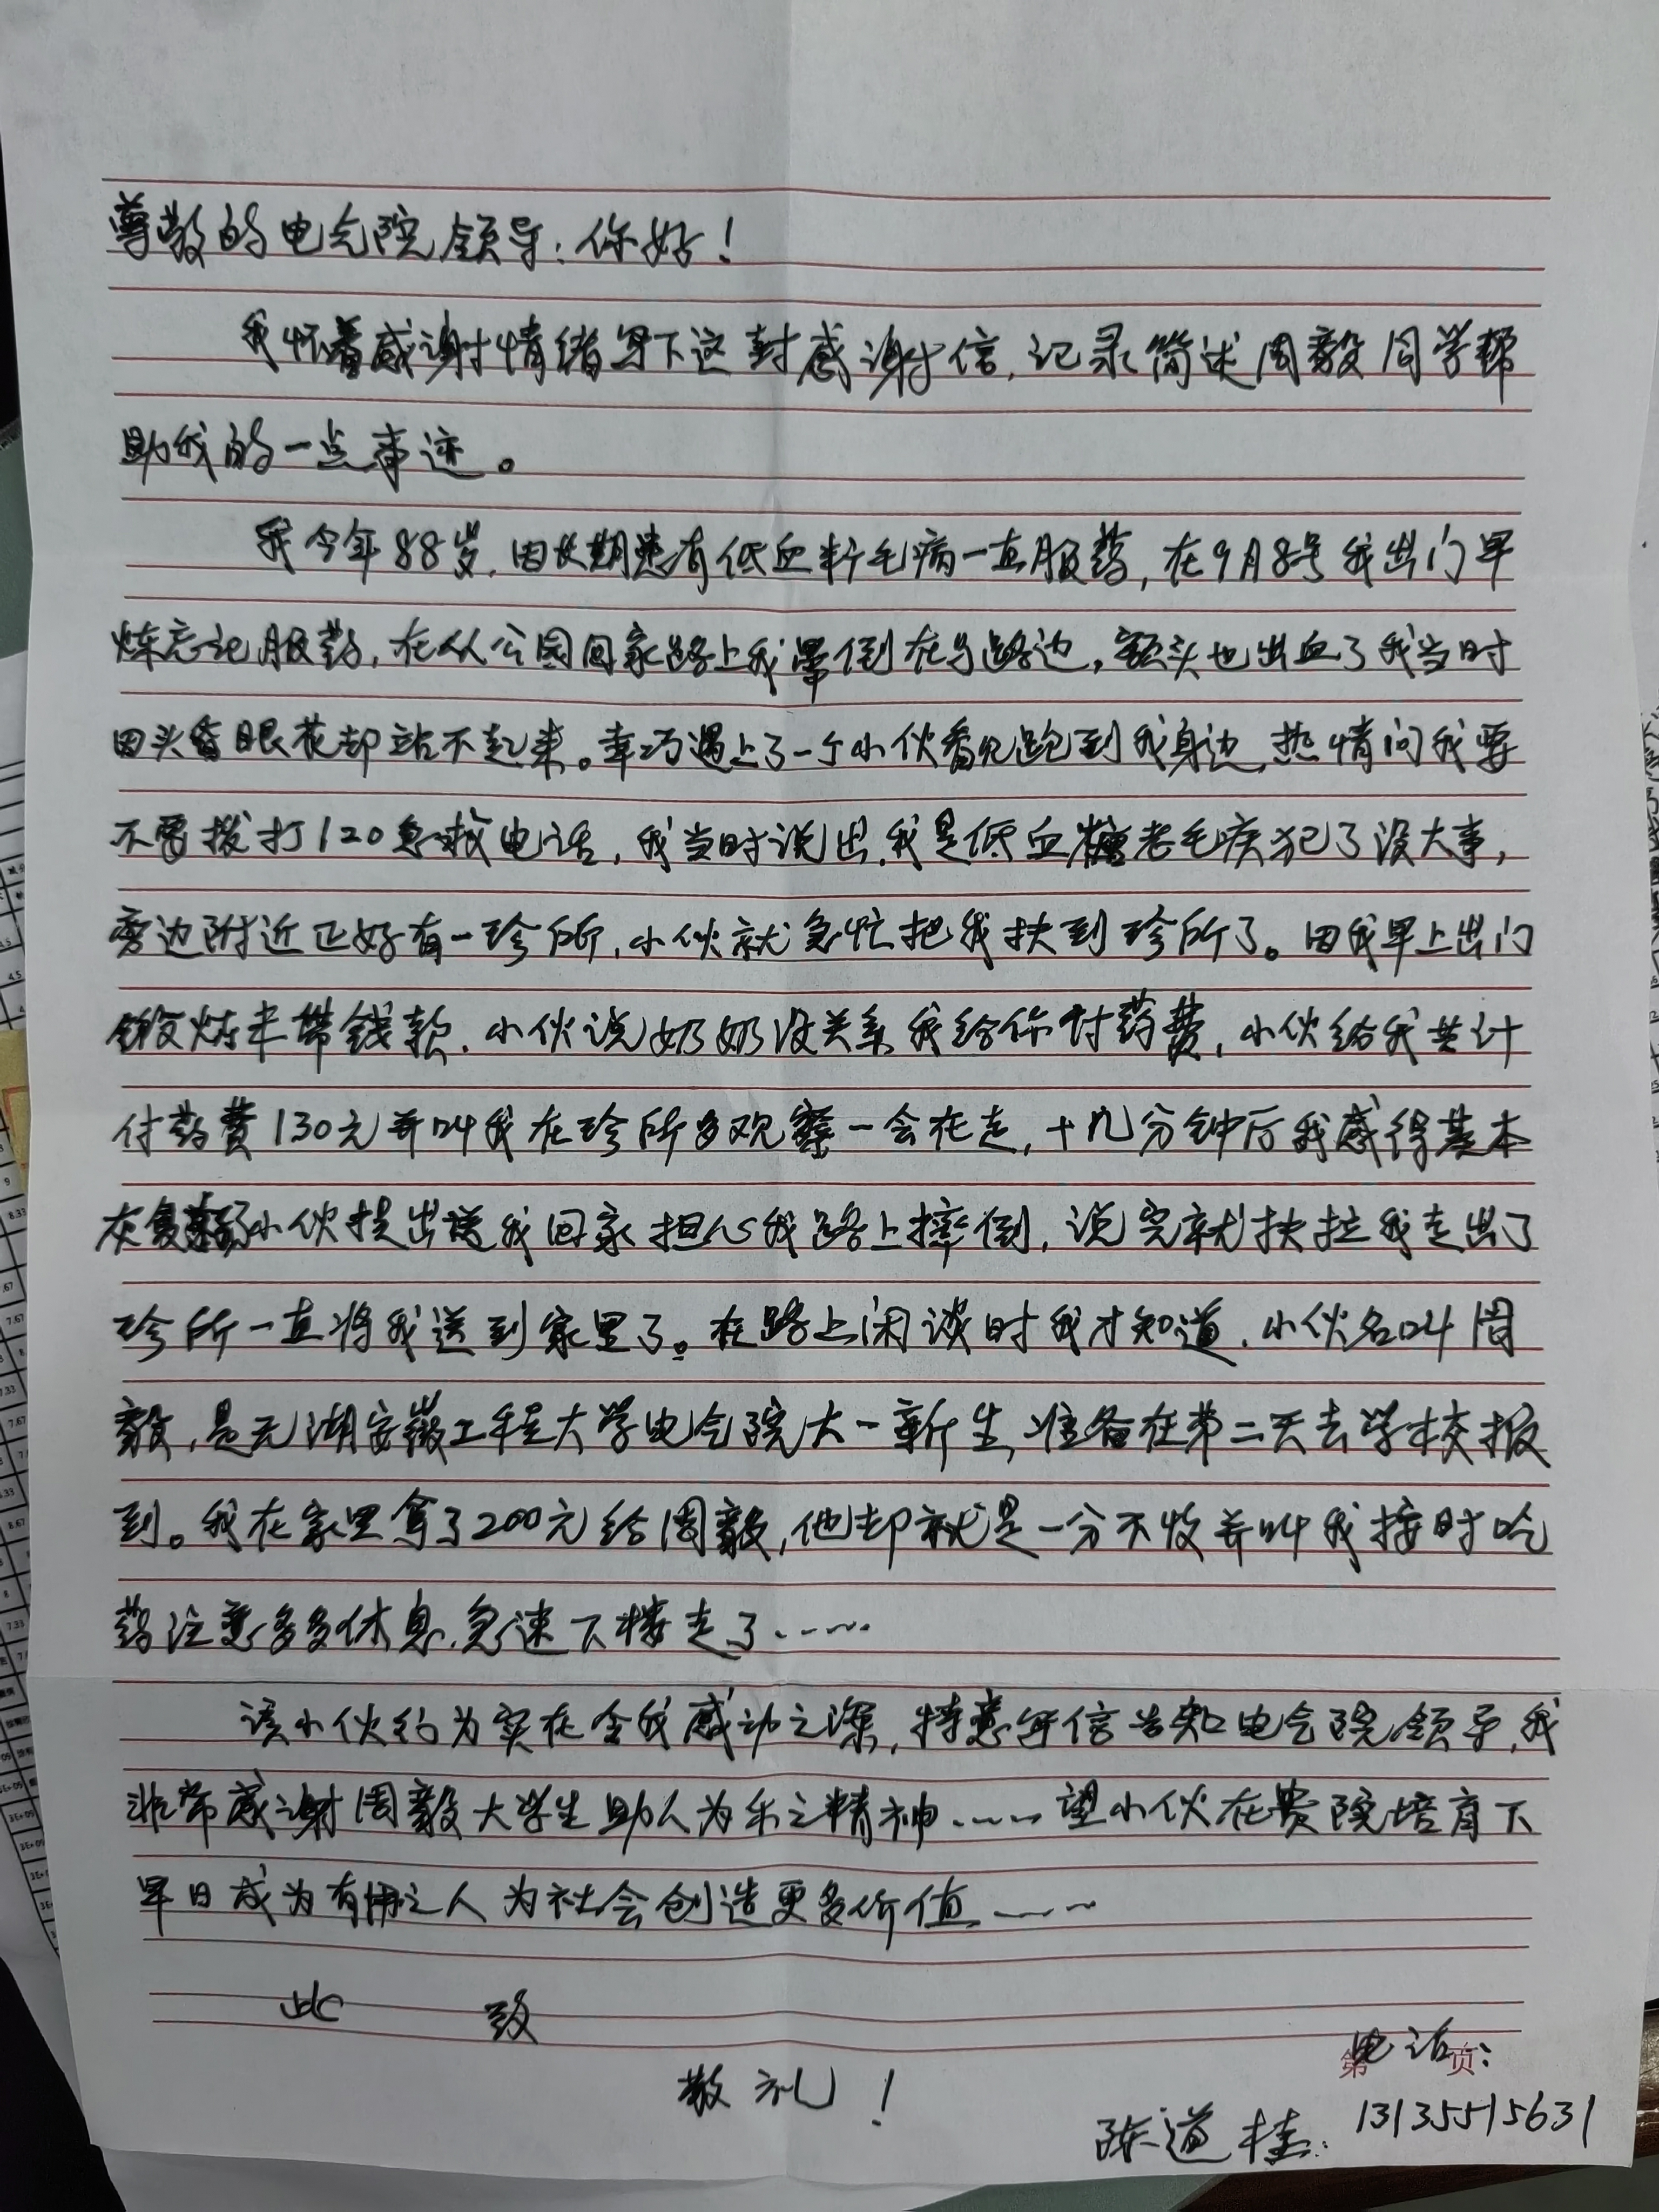 尊敬的电气院领导:你好!
我怀着感谢情绪写下这封感谢信,记录简述周毅同学帮
助我的一点事迹。
我今年88岁,因长期患有低血糖毛病一直服药,在9月8号我出门早
炼忘记服药,在从公园回家路上我晕倒在马路边,额头也出血了我当时
因头昏眼花却站不起来。幸巧遇上了一个小伙看见跑到我身边,热情问我要
不要拨打120急救电话,我当时说出,我是低血糖老毛病犯了没大事,
旁边附近正好有一珍所,小伙就急忙把我扶到珍所了。因我早上出门
锻炼未带钱款,小伙说奶奶没关系我给你付药费,小伙给我共计
付药费130元并叫我在珍所多观察一会在走,十几分钟后我感得基本
灰复小伙提出送我回家担心我路上摔倒,说完就扶拉我走出了
珍所一直将我送到家里了。在路上闲谈时我才知道,小伙名叫周
毅,是芜湖安徽工程大学电气院大一新生,准备在第二天去学校报
到。我在家里拿了200元给周毅,他却就是一分不收并叫我按时吃
药注意多多休息,急速下楼走了……
该小伙行为实在令我感动之深,特意写信告知电气院领导,我
非常感谢周毅大学生助人为乐之精神……望小伙在贵院培育下
早日成为有用之人为社会创造更多价值……
此 致
敬礼!
电话:
第 页
陈道桂: 13135515631